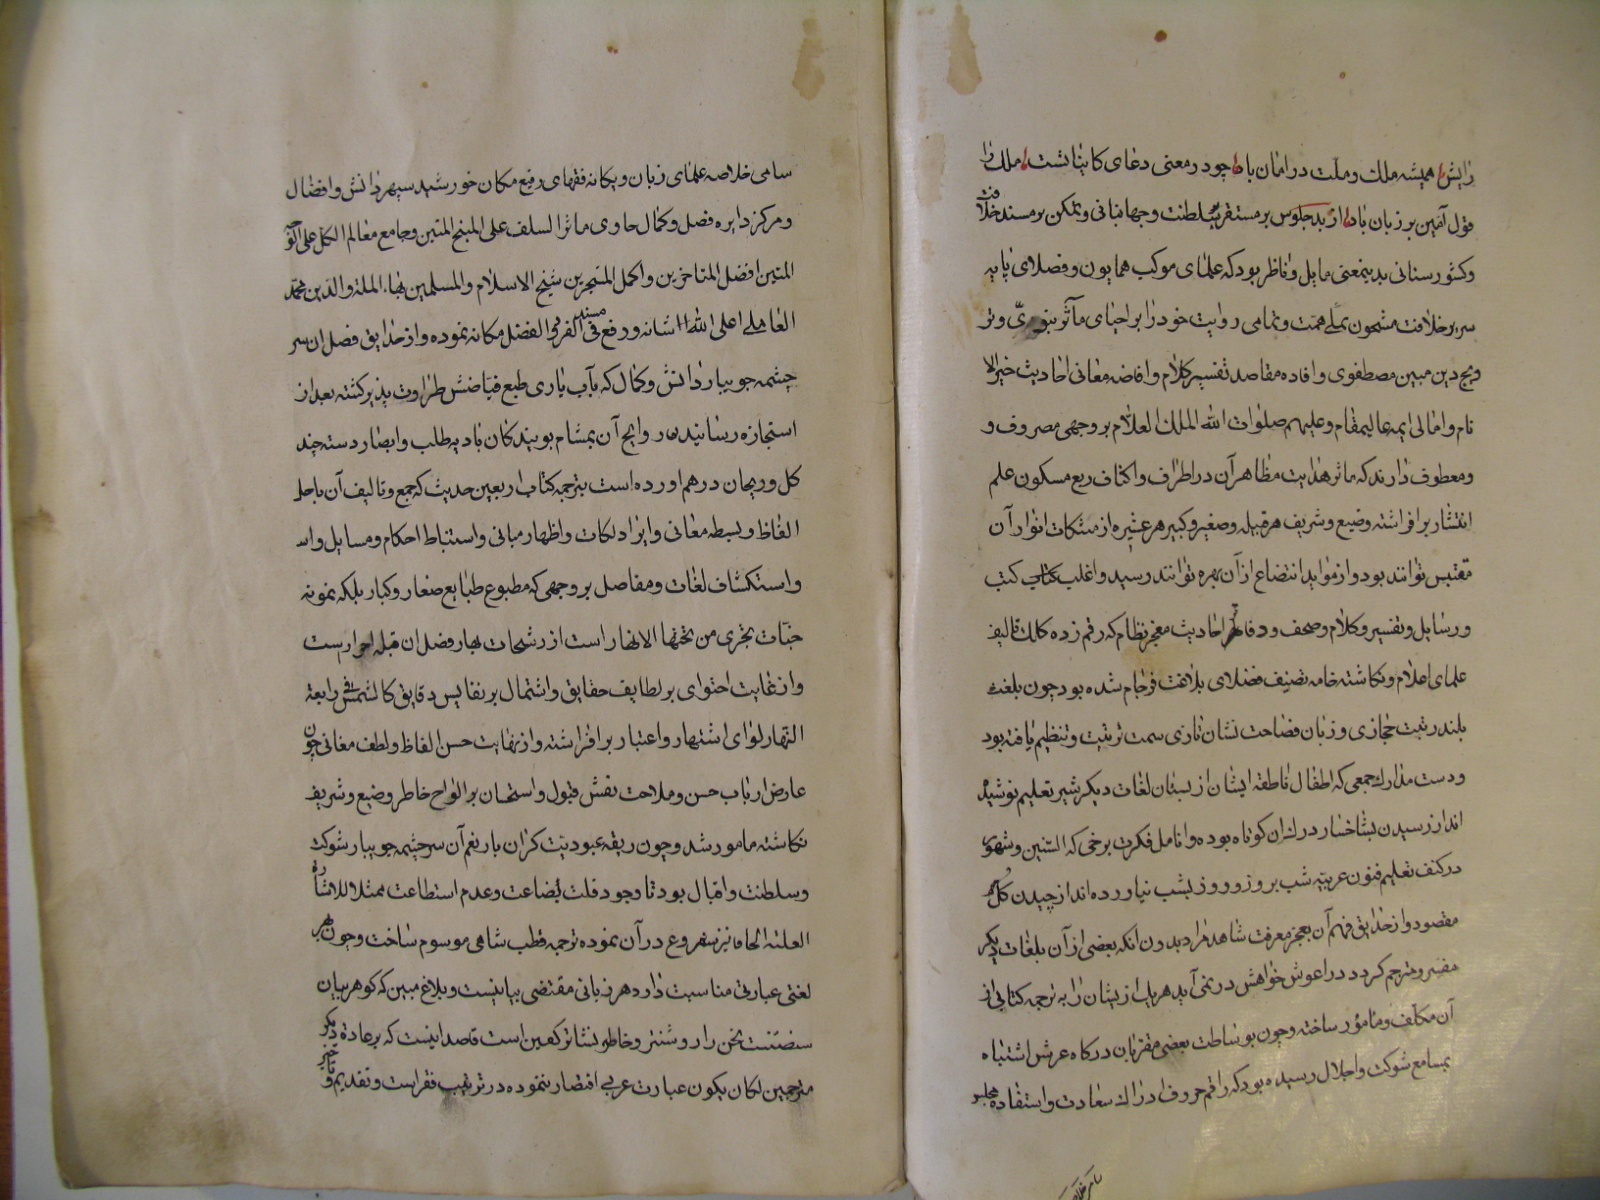 رایش همیشه ملك و ملت در امان باد چو در معنی دعای کایناتست ملك را
قول آمین بر زبان باد از بدو جلوس بر مستقر سلطنت و جهانبانی و تمکن بر مسند خلافت
و کشورستانی بدینمعنی مایل و ناظر بود که علمای موکب همایون و فضلای پایه
سریر خلافت مشحون همت و تمامی رویت خود را بر احیای مآثر نبوی و تر
ویج دین مبین مصطفوی و افاده مقاصد تفسیر کلام و افاضه معانی احادیث خیر الا
نام و امالی ایمه عالیمقام و علیهم صلوات الله الملك العلام بر وجهی مصروف و
و معطوف دارند که ماثر هدایت مظاهر آن در اطراف و اکناف ربع مسکون علم
انتشار بر افراشته وضیع و شریف هر قبیله و صغیر و کبیر هر عشیره از مشکات انوار آن
مقتبس توانند بود و از مواید انتفاع از آن بهره توانند رسید و اغلب کتب
و رسایل و تفسیر و کلام و صحف و دفاتر احادیث معجز نظام که رقم زده کلك تالیف
علمای اعلام و نکاشته خامه تصنیف فضلای بلاغت فرجام شده بود چون بلغت
بلند رتبت حجازی و زبان فصاحت نشان تازی سمت ترتیب و تنظیم یافته بود
و دست مدارك جمعی که اطفال ناطقه ایشان از پستان لغات دیکر شیر تعلیم نوشیده
اند از رسیدن بشاخسار درك آن کوتاه بوده و انامل فکرت برخی که السنین و شهور
در کنف تعلیم فنون عربیه شب بروز و روز بشب نیاورده اند از چیدن کل
مقصود از حدایق فهم آن بعجز معرفت شاهد مراد بدون انکه بعضی از آن بلغات دیکر
مفسر و مترجم کردد در اغوش خواهش در نمی آید هر یك از یشان را به ترجمه کتابی از
آن مکلف و مامور ساخته و چون بوساطت بعضی مقربان درکاه عرش اشتباه
بمسامع شوکت و اجلال رسیده بود که راقم حروف ادراك سعادت و استفاده مجلس
سامی خلاصه علمای زمان و یکانه فقهای رفیع مکان خورشید سپهر دانش و افضال
و مرکز دایره فضل و کمال حاوی ماثر السلف علی المنهج المتین و جامع معالم الکل علی الوجه
المتین افضل المتاخرین و اکمل المتبحرین شیخ الاسلام و المسلمین بهاء الملة و الدین محمد
العاملی اعلی الله شانه و رفع فی مسند الفضل مکانه نموده و از حدایق فضل ان سر
چشمه جویبار دانش و کمال که بآب یاری طبع فیاضش طراوت پذیر کشته بعد از
استجازه رسانیدن روایح آن بمشام پویندکان بادیه طلب و ابصار دسته چند
کل و ریحان در هم اورده است بترجمه کتاب اربعین حدیث که جمع و تالیف آن
الفاظ و بسیطه معانی و ایراد نکات و اظهار مبانی و استنباط احکام و مسایل و اس
و استکشاف لغات و مفاصل بر وجهی که مطبوع طبایع صغار و کبار بلکه نمونه
جنات تجری من تحتها الانهار است از رشحات بهار فضل ان قبله احرارست
و از غایت احتوای بر لطایف حقایق و اشتمال بر نفایس دقایق کالشمس فی رابعة
النهار لوای اشتهار و اعتبار بر افراشته و از نهایت حسن الفاظ و لطف معانی چون
عارض ارباب حسن و ملاحت نقش قبول و استحسان بر الواح خاطر وضیع و شریف
نکاشته مامور شد و چون ربقه عبودیت کران بار نعم آن سرچشمه جویبار شوکت
و سلطنت و اقبال بود با وجود قلت بضاعت و عدم استطاعت ممتثلا للاشارة
العلیة الخاقانیه شروع در آن نموده ترجمه قطب شاهی موسوم ساخت و چون هر
لغتی عبارتی مناسبت دارد و هر زبانی مقتضی بیانیست و بلاغ مبین که کوهر بیان
سخن را روشنتر و خاطر نشانتر کعین است قاصد اینست که بر عادة دیکر
مترجمین لکان یکون عبارت عربی اقتصار ننموده در ترتیب فقرات و تقدیم و تاخیر